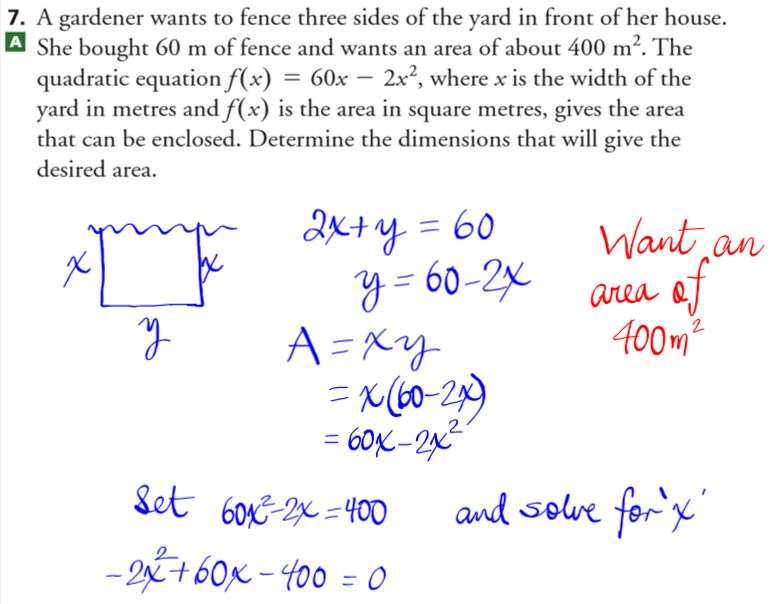 7. A gardener wants to fence three sides of the yard in front of her house.
A She bought 60 m of fence and wants an area of about 400 m². The
quadratic equation f(x) = 60x − 2x², where x is the width of the
yard in metres and f(x) is the area in square metres, gives the area
that can be enclosed. Determine the dimensions that will give the
desired area.
2x+y = 60
Want an
x x
y = 60-2x
area of
y
A = xy
400m²
= x(60-2x)
= 60x-2x²
Set 60x²-2x=400 and solve for 'x'
-2x²+60x-400 = 0